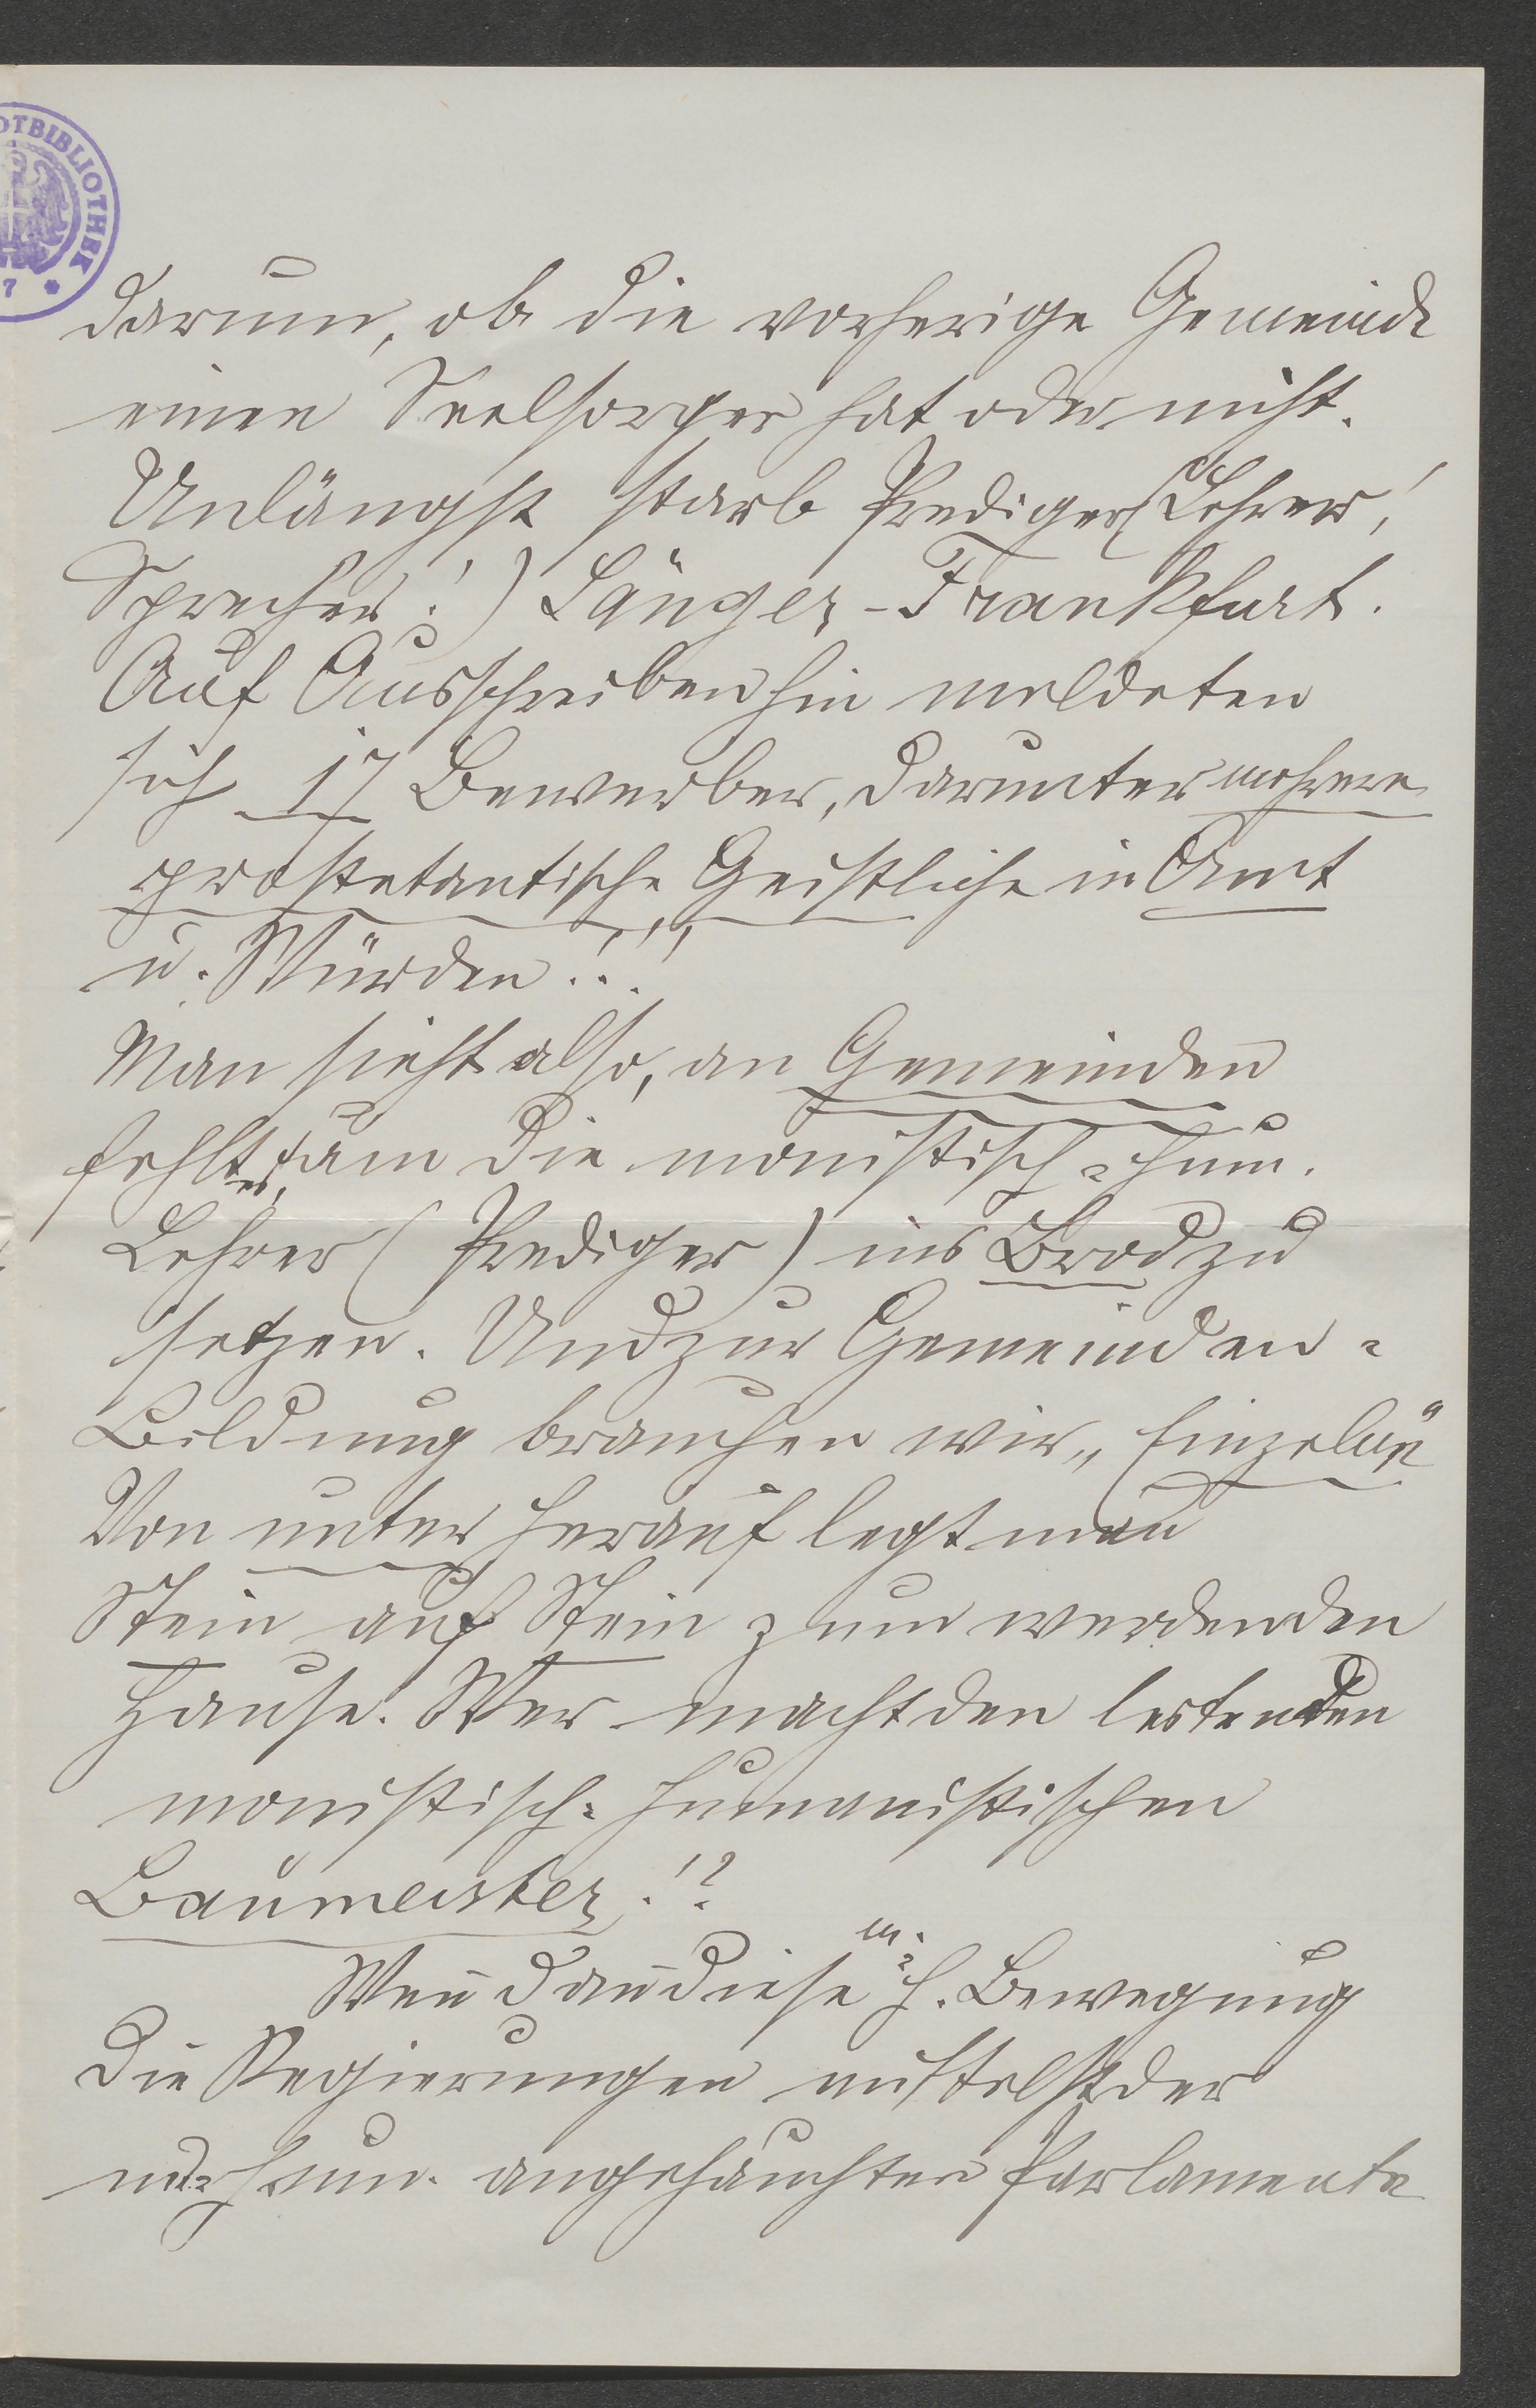 DTBIBLIOTHEK
7 *
darum, ob die vorherige Gemeinde
einen Seelsorger hat oder nicht.
Unlängst starb Prediger (Lehrer,!
Sprecher!) Sänger-Frankfurt.
Auf Ausschreiben hin meldeten
sich 17 Bewerber, darunter mehrere
prostetantische Geistliche in Amt
u. Würden!!!
Man sieht also, an Gemeinden
fehlt es, um die monistisch-hum.
Lehrer (Prediger) ins Brod zu
setzen. Und zur Gemeinden-
Bildung brauchen wir „Einzelne"
Von unten herauf legt man
Stein auf Stein zum werdenden
Hause. Wer macht den leitenden
monistisch-humanistischen
Baumeister!?
Weñ dañ diese m.-h. Bewegung
die Regierungen mittelst der
m.-hum. angehauchten Parlamente